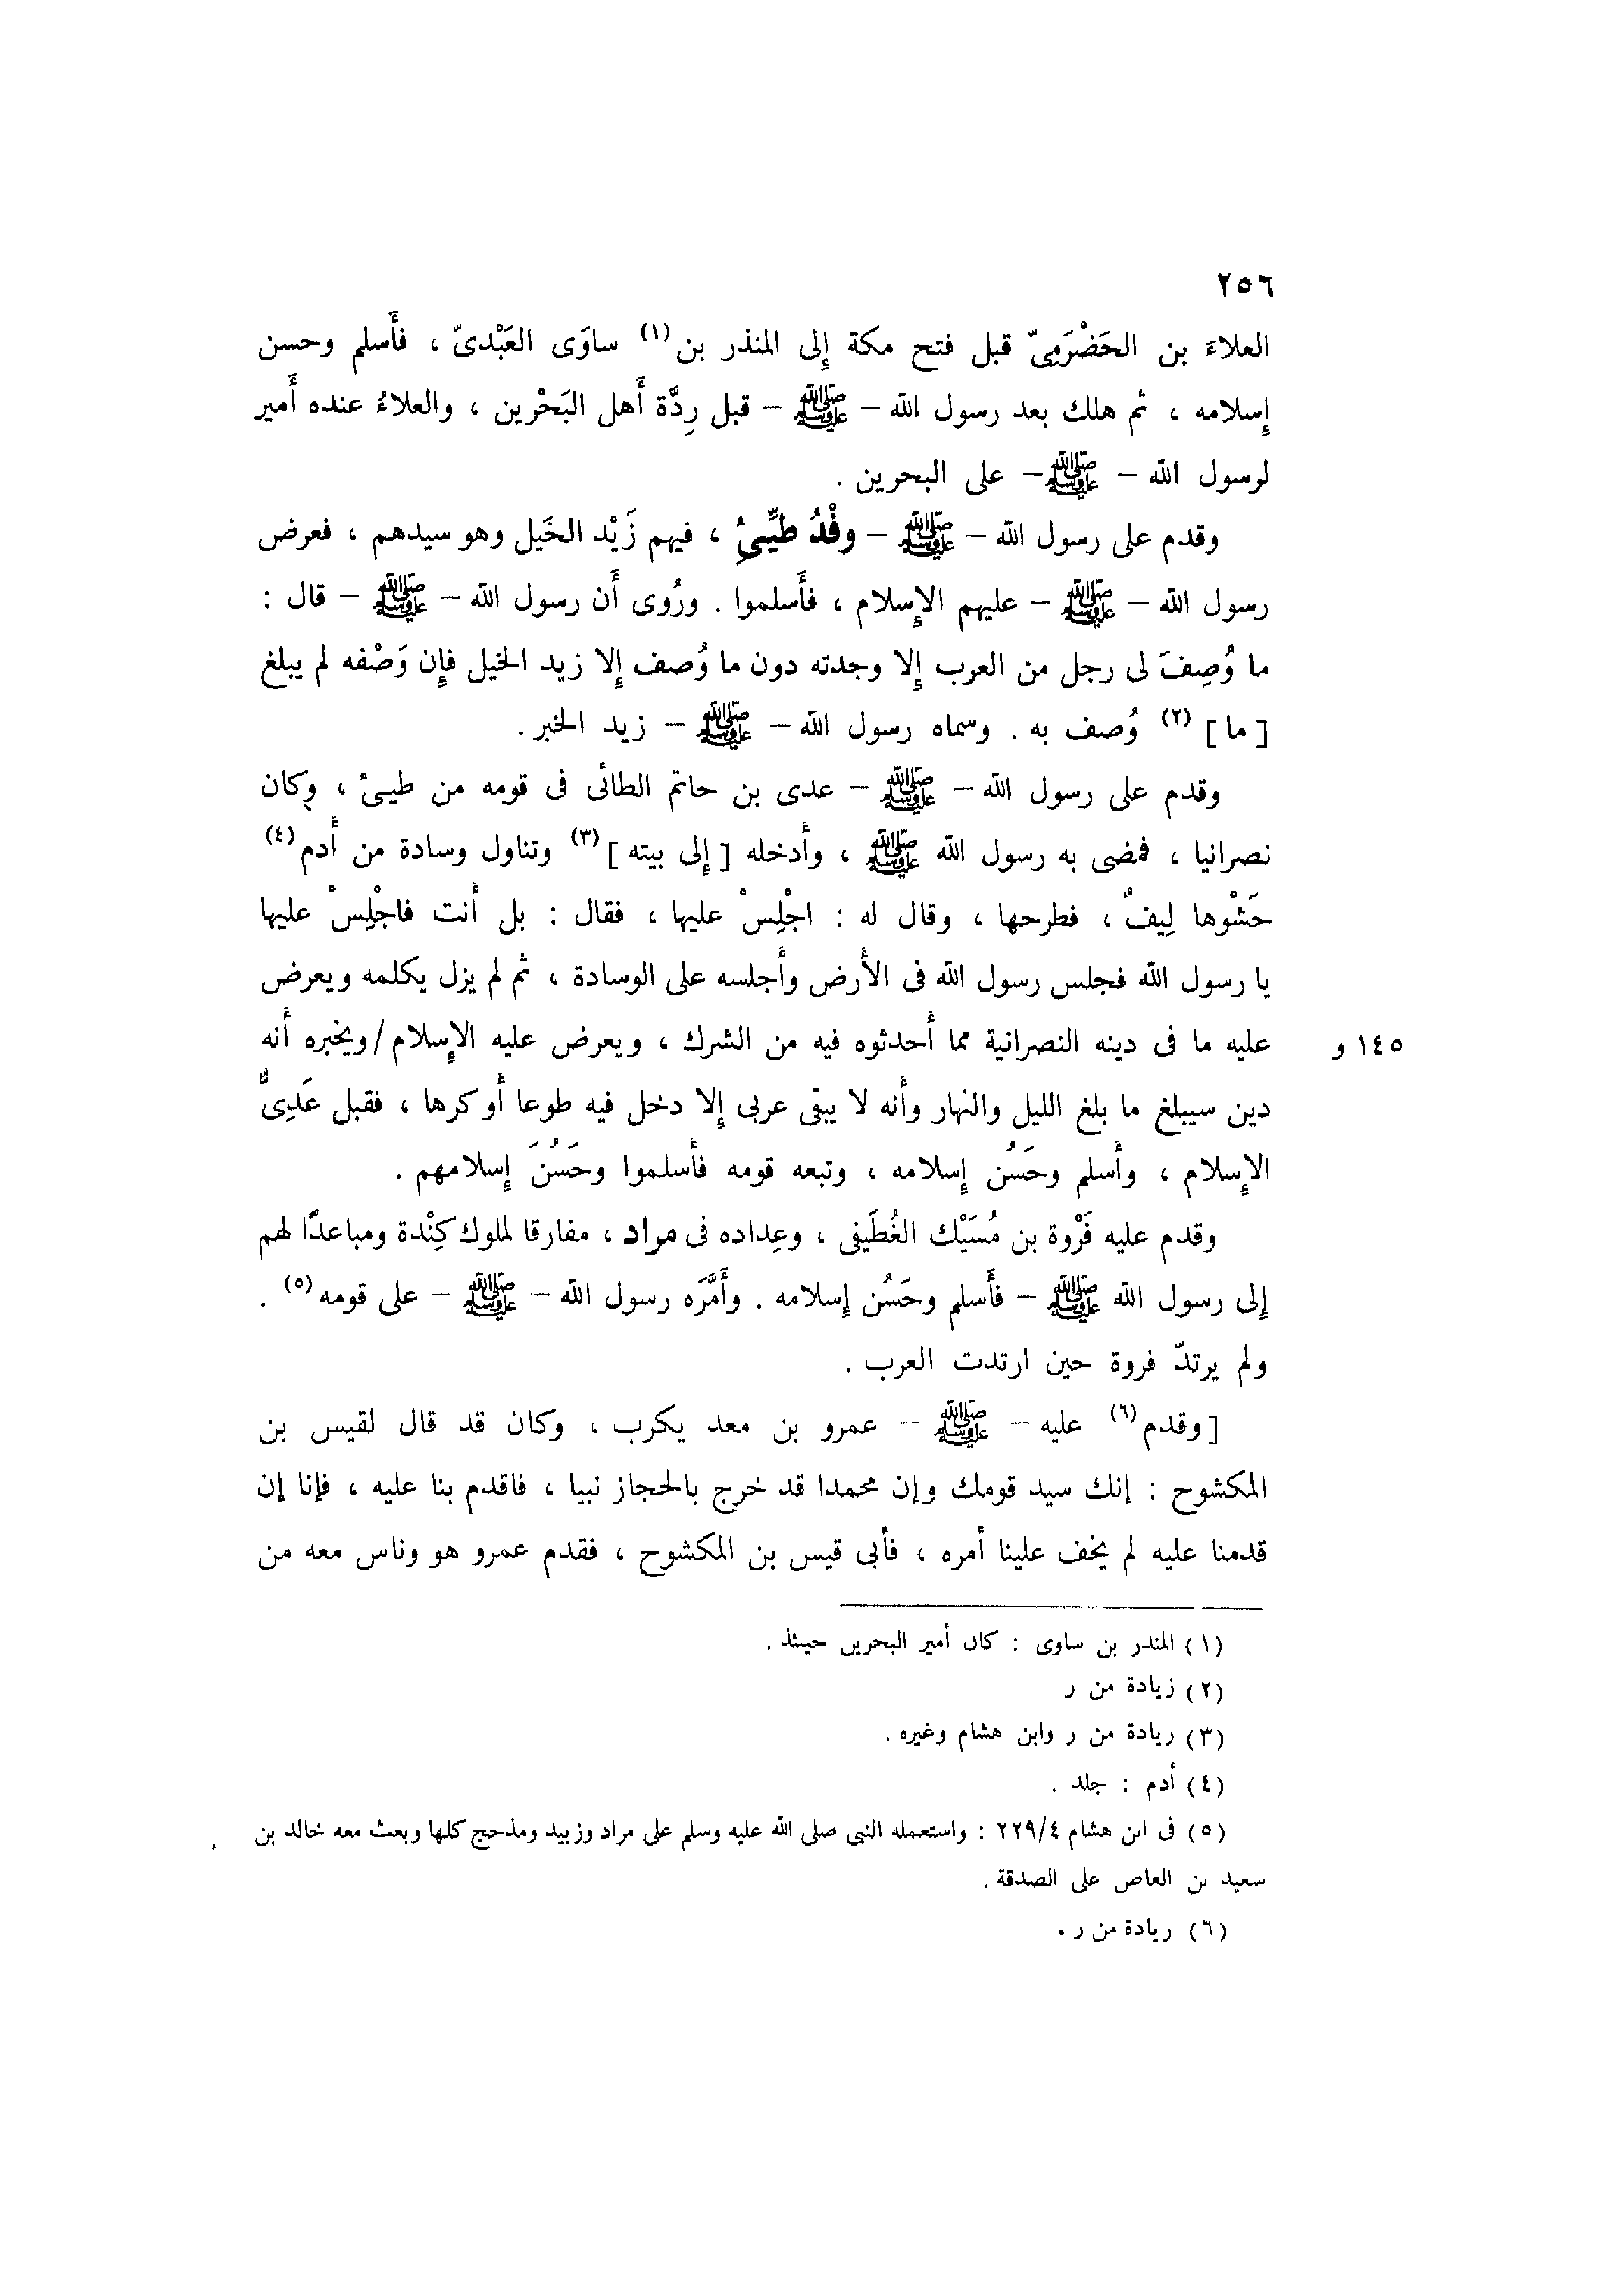 ٢٥٦
العلاءَ بن الحَضْرَمِىّ قبل فتح مكة إِلى المنذر بن (١) ساوَى العَبْدىّ ، فأَسلم وحسن
إِسلامه ، ثم هلك بعد رسول الله – ﷺ – قبل رِدَّة أَهل البَحْرين ، والعلاءُ عنده أَمير
لرسول الله – ﷺ – على البحرين .
وقدم على رسول الله – ﷺ – وفْدُ طيِّئِ ، فيهم زَيْد الخَيل وهو سيدهم ، فعرض
رسول الله – ﷺ – عليهم الإِسلام ، فأَسلموا . ورُوى أَن رسول الله – ﷺ – قال :
ما وُصِفَ لى رجل من العرب إِلا وجدته دون ما وُصف إِلا زيد الخيل فإِن وَصْفه لم يبلغ
[ ما ] (٢) وُصف به . وسماه رسول الله – ﷺ – زيد الخبر .
وقدم على رسول الله – ﷺ – عدى بن حاتم الطائى فى قومه من طيئ ، وكان
نصرانيا ، فمضى به رسول الله ﷺ ، وأَدخله [ إِلى بيته ] (٣) وتناول وسادة من أَدم (٤)
حَشْوها لِيفٌ ، فطرحها ، وقال له : اجْلِسْ عليها ، فقال : بل أَنت فاجْلِسْ عليها
يا رسول الله فجلس رسول الله فى الأَرض وأَجلسه على الوسادة ، ثم لم يزل يكلمه ويعرض
عليه ما فى دينه النصرانية مما أَحدثوه فيه من الشرك ، ويعرض عليه الإِسلام / ويخبره أَنه ١٤٥ و
دين سيبلغ ما بلغ الليل والنهار وأَنه لا يبقى عربى إِلا دخل فيه طوعا أَو كرها ، فقبل عَدِىٌّ
الإِسلام ، وأَسلم وحَسُن إِسلامه ، وتبعه قومه فأَسلموا وحَسُنَ إِسلامهم .
وقدم عليه فَرْوة بن مُسَيْك الغُطَيفى ، وعِداده فى مراد ، مفارقا لملوك كِنْدة ومباعدًا لهم
إِلى رسول الله ﷺ – فأَسلم وحَسُن إِسلامه . وأَمَّرَه رسول الله – ﷺ – على قومه (٥) .
ولم يرتدّ فروة حين ارتدت العرب .
[ وقدم (٦) عليه – ﷺ – عمرو بن معد يكرب ، وكان قد قال لقيس بن
المكشوح : إنك سيد قومك وإن محمدا قد خرج بالحجاز نبيا ، فاقدم بنا عليه ، فإنا إن
قدمنا عليه لم يخف علينا أمره ، فأبى قيس بن المكشوح ، فقدم عمرو هو وناس معه من
(١) المنذر بن ساوى : كان أمير البحرين حينئذ .
(٢) زيادة من ر
(٣) زيادة من ر وابن هشام وغيره .
(٤) أدم : جلد .
(٥) فى ابن هشام ٢٢٩/٤ : واستعمله النبى صلى الله عليه وسلم على مراد وزبيد ومذحج كلها وبعث معه خالد بن
سعيد بن العاص على الصدقة .
(٦) زيادة من ر .